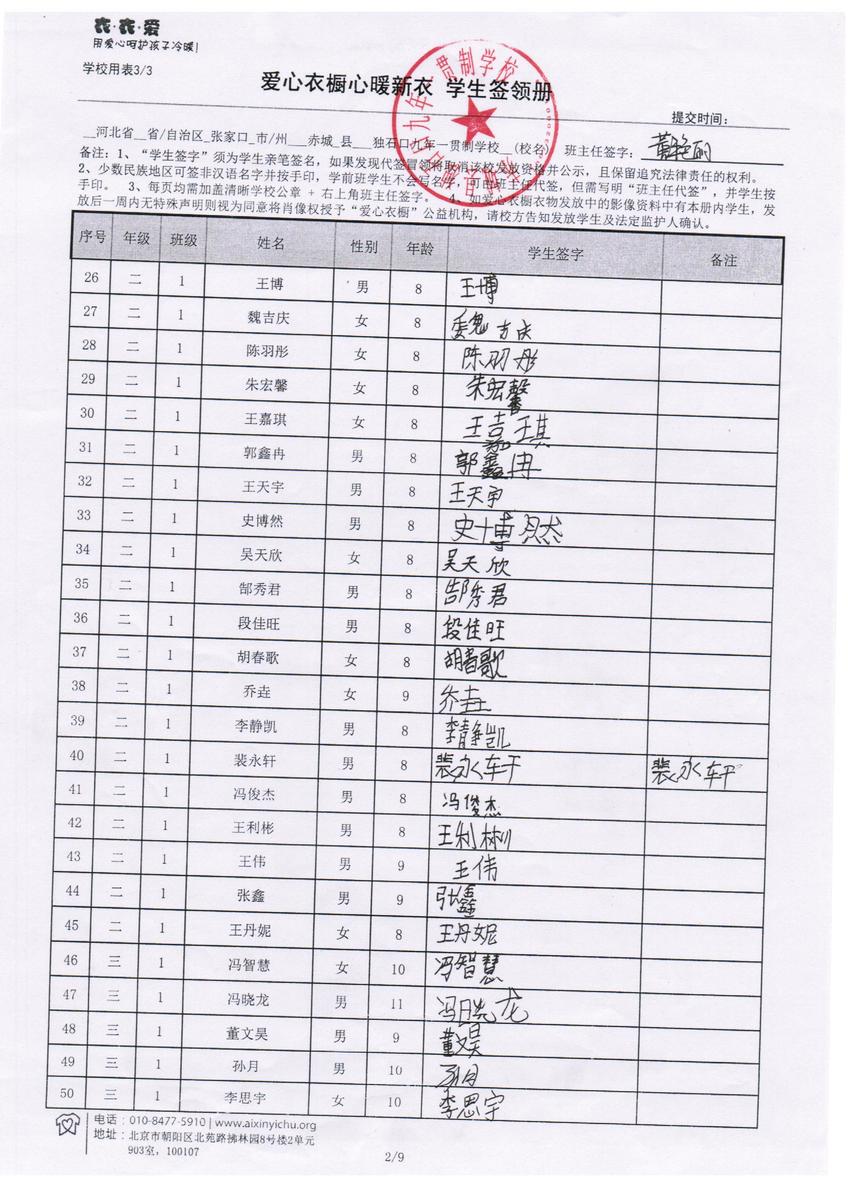 衣·衣·爱
用爱心呵护孩子冷暖!
学校用表3/3
爱心衣橱心暖新衣 学生签领册
提交时间:
__河北省__省/自治区_张家口_市/州___赤城_县___独石口九年一贯制学校__(校名) 班主任签字:
备注:1、“学生签字”须为学生亲笔签名,如果发现代签冒领将取消该校发放资格并公示,且保留追究法律责任的权利。
2、少数民族地区可签非汉语名字并按手印,学前班学生不会写名字,可由班主任代签,但需写明“班主任代签”,并学生按
手印。 3、每页均需加盖清晰学校公章 + 右上角班主任签字。 4、如爱心衣橱衣物发放中的影像资料中有本册内学生,发
放后一周内无特殊声明则视为同意将肖像权授予“爱心衣橱”公益机构,请校方告知发放学生及法定监护人确认。
序号 年级 班级 姓名 性别 年龄 学生签字 备注
26 二 1 王博 男 8 王博
27 二 1 魏吉庆 女 8 魏吉庆
28 二 1 陈羽彤 女 8 陈羽彤
29 二 1 朱宏馨 女 8 朱宏馨
30 二 1 王嘉琪 女 8 王嘉琪
31 二 1 郭鑫冉 男 8 郭鑫冉
32 二 1 王天宇 男 8 王天宇
33 二 1 史博然 男 8 史博然
34 二 1 吴天欣 女 8 吴天欣
35 二 1 郜秀君 男 8 郜秀君
36 二 1 段佳旺 男 8 段佳旺
37 二 1 胡春歌 女 8 胡春歌
38 二 1 乔垚 女 9 乔垚
39 二 1 李静凯 男 8 李静凯
40 二 1 裴永轩 男 8 裴永轩 裴永轩
41 二 1 冯俊杰 男 8 冯俊杰
42 二 1 王利彬 男 8 王利彬
43 二 1 王伟 男 9 王伟
44 二 1 张鑫 男 9 张鑫
45 二 1 王丹妮 女 8 王丹妮
46 三 1 冯智慧 女 10 冯智慧
47 三 1 冯晓龙 男 11 冯晓龙
48 三 1 董文昊 男 9 董文昊
49 三 1 孙月 男 10 孙月
50 三 1 李思宇 女 10 李思宇
电话:010-8477-5910 | www.aixinyichu.org
地址:北京市朝阳区北苑路拂林园8号楼2单元
903室,100107
2/9